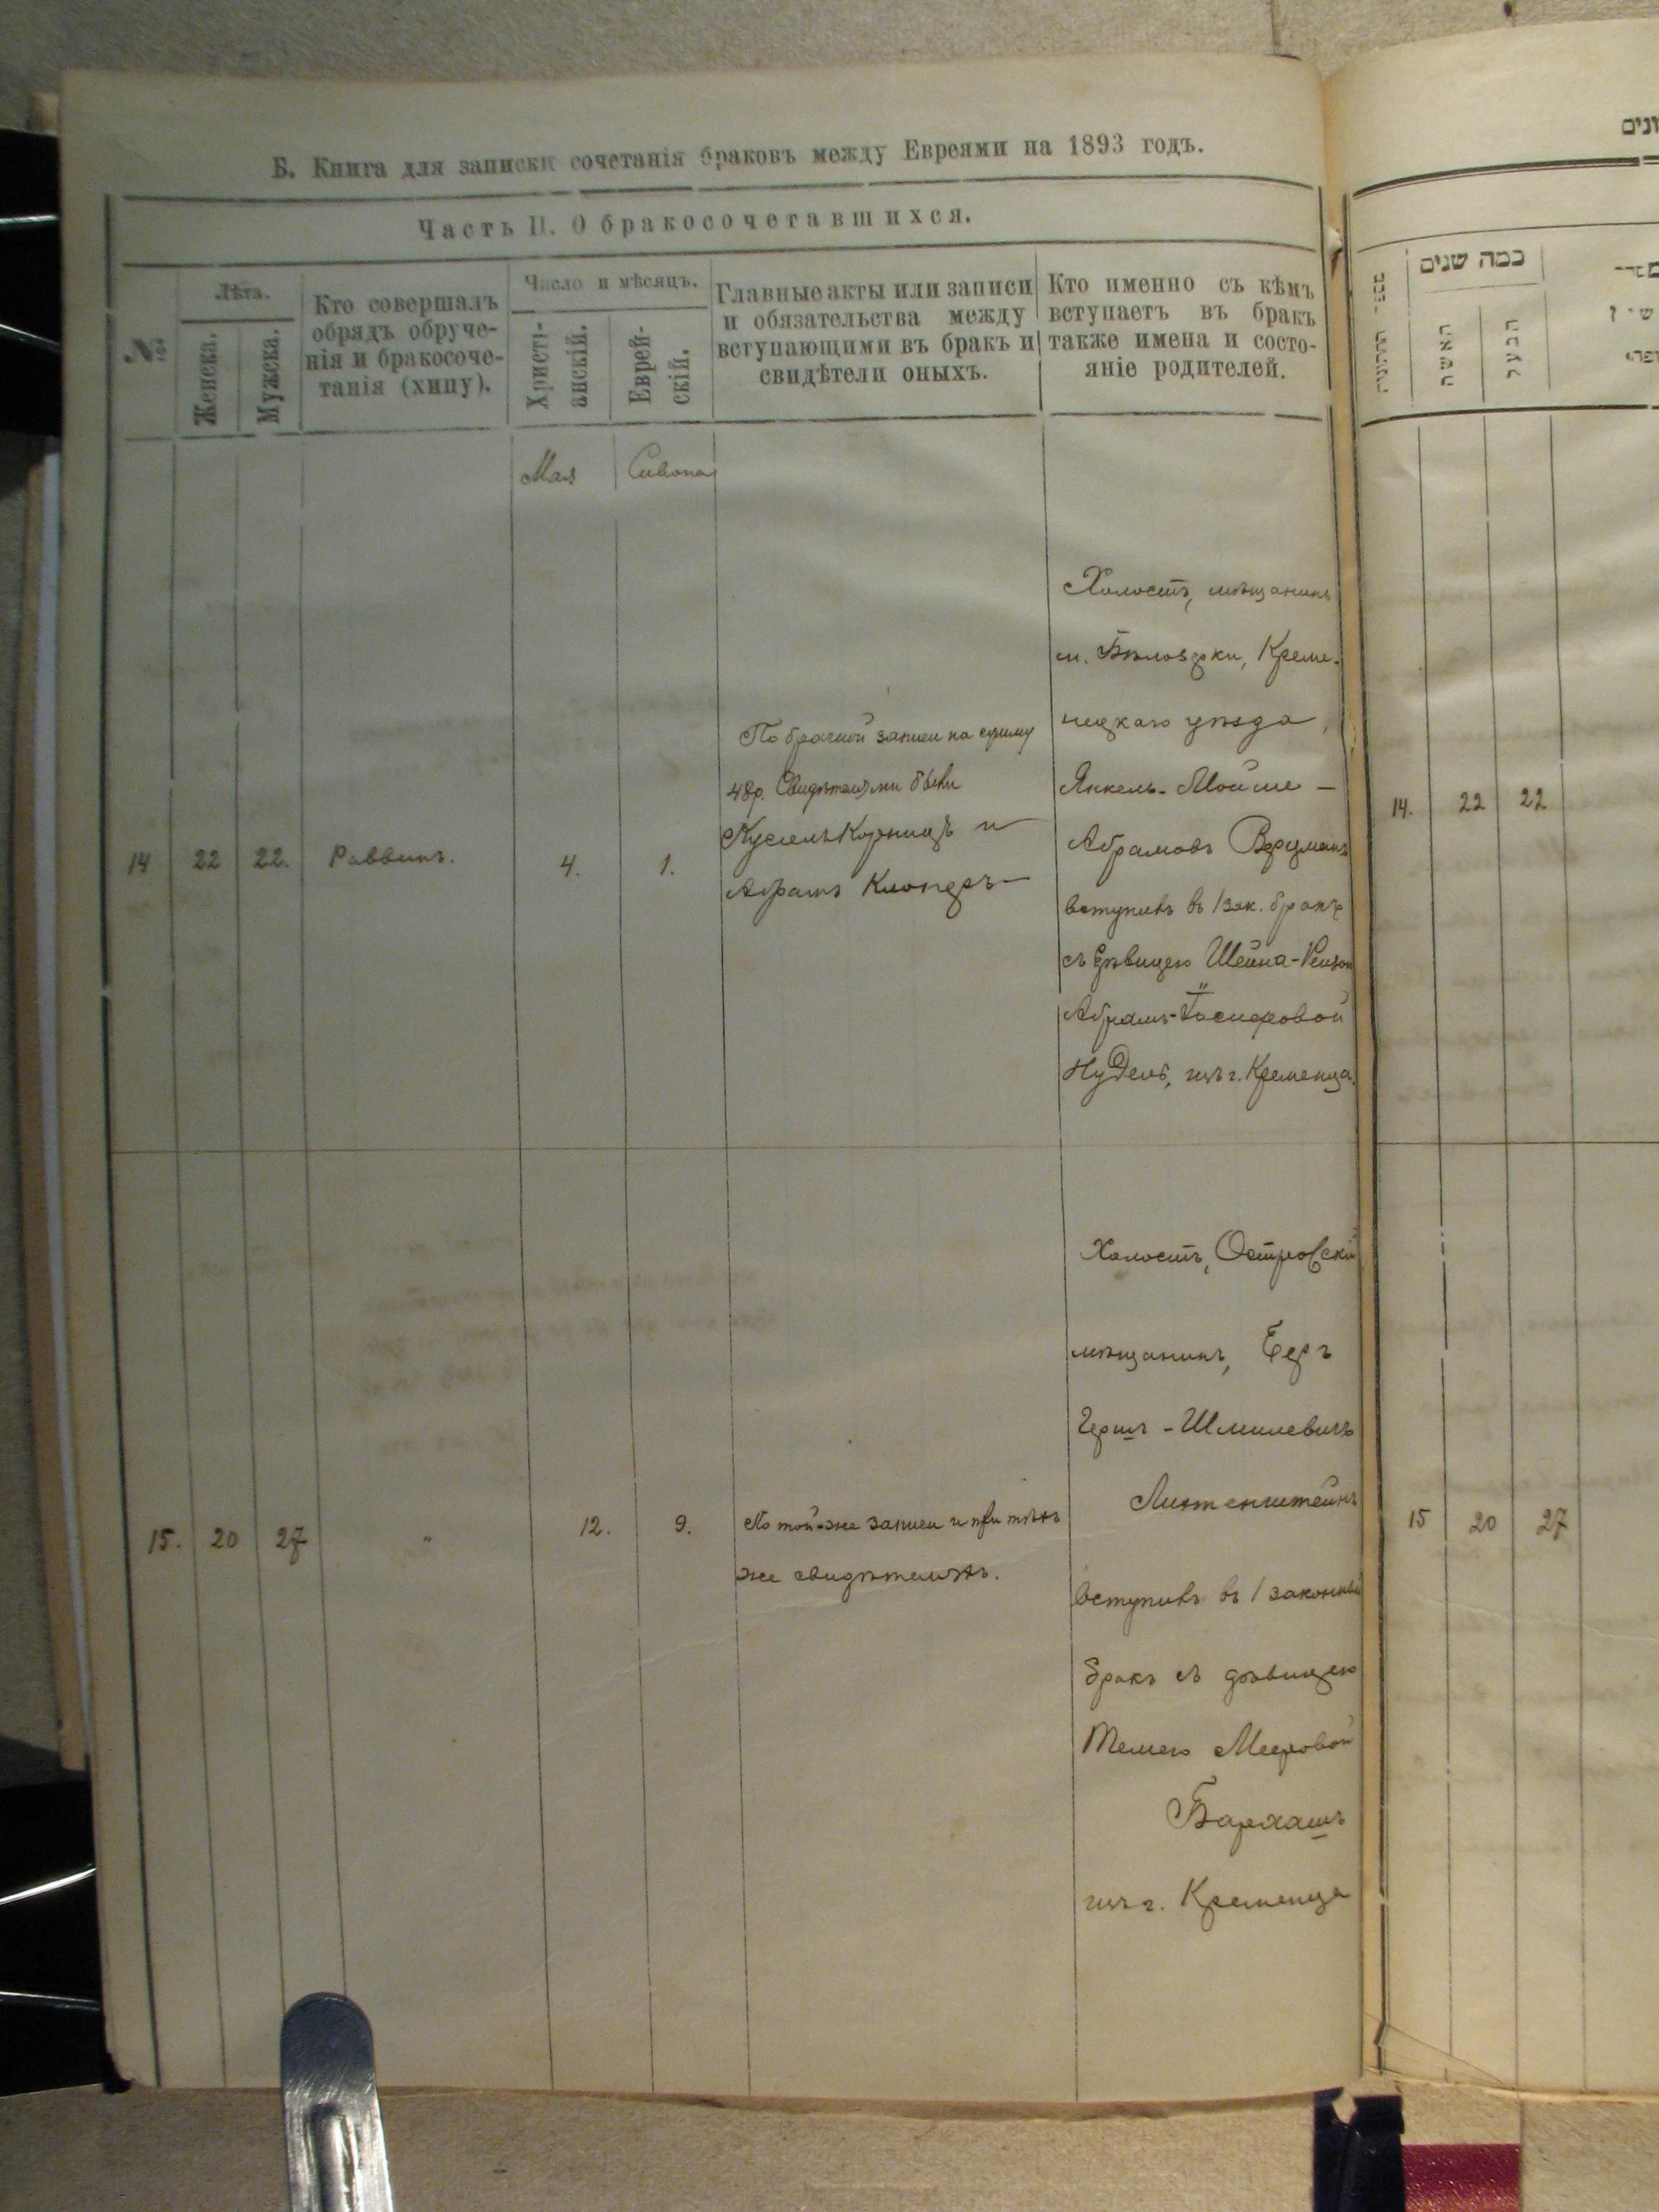 Б. Книга для записки сочетанія браковъ между Евреями на 1893 годъ.
Часть II. О бракосочетавшихся.
№
Лѣта.
Женска.
Мужска.
Кто совершалъ
обрядъ обруче-
нія и бракосоче-
танія (хипу).
Число и мѣсяцъ.
Христі-
анскій.
Еврей-
скій.
Главные акты или записи
и обязательства между
вступающими въ бракъ и
свидѣтели оныхъ.
Кто именно съ кѣмъ
вступаетъ въ бракъ
также имена и состо-
яніе родителей.
Мая
Сивона
14
22
22.
Раввинъ.
4.
1.
По брачной записи на сумму
48р. Свидѣтелями были
Кусель Корницъ и
Абрамъ Клоперъ
Холостъ, мѣщанинъ
м. Бѣлозорки, Креме-
нецкаго уѣзда,
Янкель-Мойше -
Абрамовъ Верцманъ
вступилъ въ 1 зак. бракъ
съ дѣвицею Шейна-Рейзою
Абрамъ-Іосифовой
Нудель, изъ г. Кременца.
15.
20
27
"
12.
9.
По той-же записи и при тѣхъ
же свидѣтеляхъ.
Холостъ, Островскій
мѣщанинъ, Беръ
Гершъ - Шмилевичъ
Лихтенштейнъ
вступилъ въ 1 законный
бракъ съ дѣвицею
Темею Мееровой
Бархашъ
изъ г. Кременца
כמה שנים
האשה
הבעל
14.
22
22
15
20
27